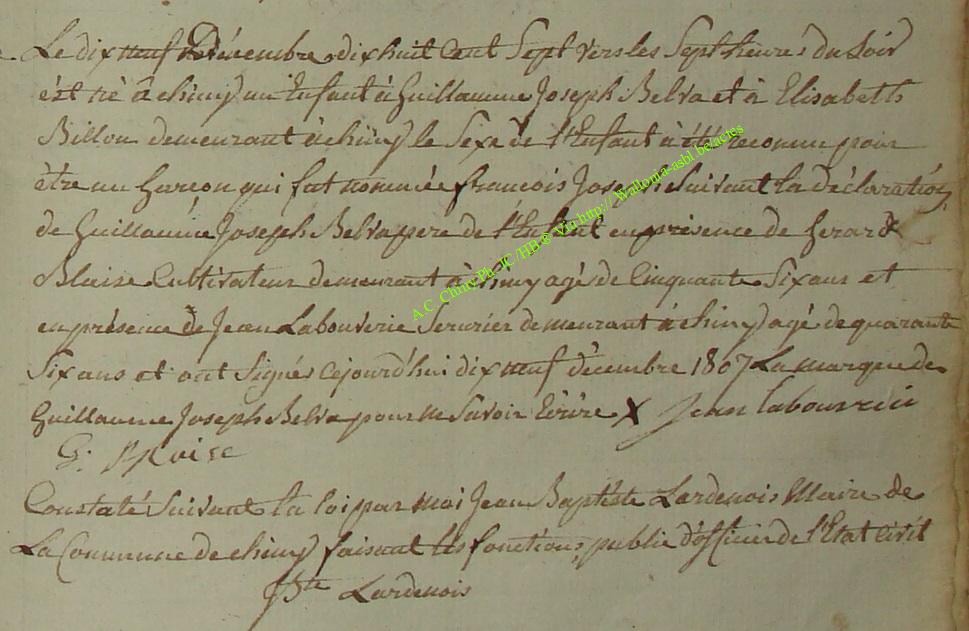 Le dix neuf Décembre dixhuit Cent Sept vers les Sept heures du Soir
est né à chiny un Enfant à Guillaume Joseph Belva et à Elisabeth
Billon demeurant à chiny le Sexe de l'Enfant à été reconnu pour
être un Garcon qui fut nommée francois Joseph Suivant la déclaration
de Guillaume Joseph Belva pere de l'Enfant en présence de Gerard
Blaise Cultivateur demeurant à chiny agé de Cinquante Six ans et
en présence de Jean Labouverie Serurier demeurant à chiny agé de quarante
Six ans et ont Signés cejourd'hui dix neuf décembre 1807 La marque de
Guillaume Joseph Belva pour ne Savoir Ecrire X Jean labouverie
G: Blaise
Constaté Suivant la loi par moi Jean Baptiste Lardenois Maire de
La Commune de chiny faisant les fonctions public d'officier de l'Etat Civil
JBte Lardenois
A.C. Chiny Ph. JC /HB ® Via http://Wallonia-asbl.be/actes